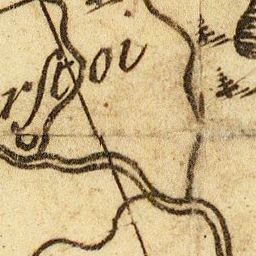 rſtoi